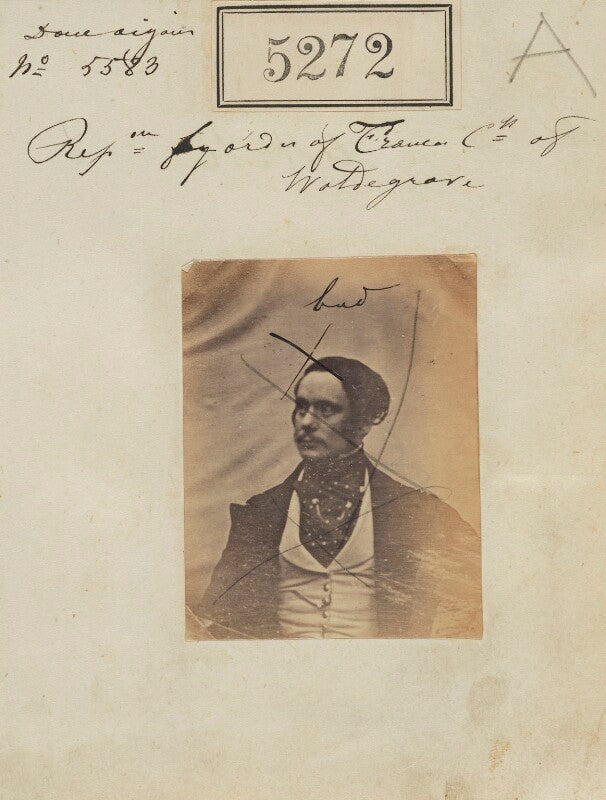 Done again
No 5583
5272
A
Repn by order of Frances Css of
Waldegrave
bad